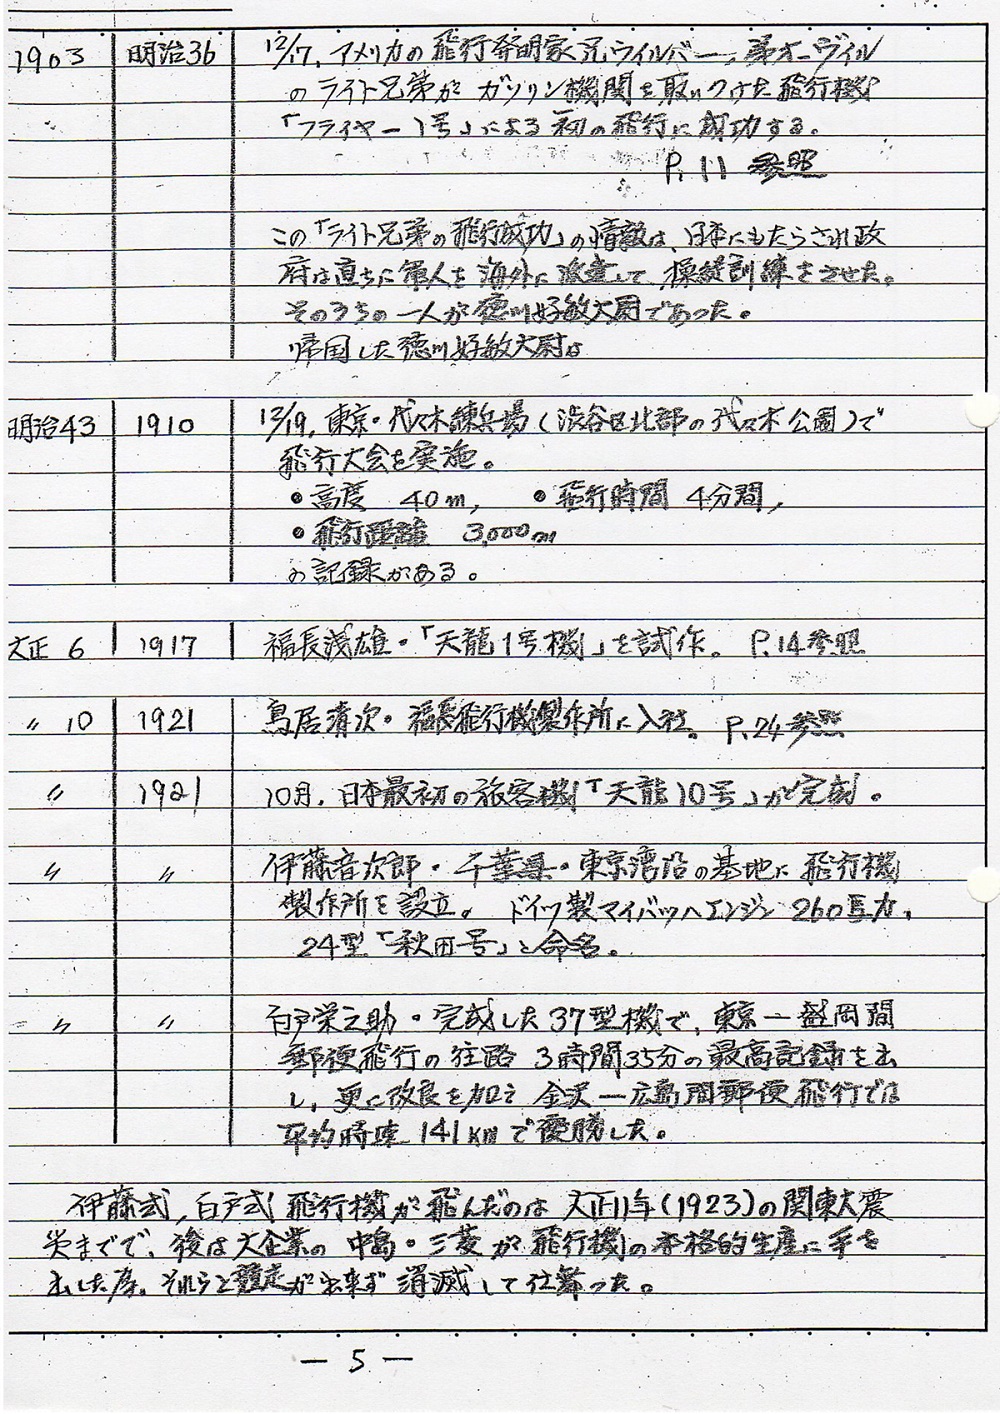 1903 明治36 12/17, アメリカの飛行発明家兄ウイルバー, 弟オーヴィル
のライト兄弟が ガソリン機関を取りつけた飛行機
「フライヤー1号」による初の飛行に成功する。
P. 11 参照
この「ライト兄弟の飛行成功」の情報は、日本にもたらされ政
府は直ちに軍人を海外に派遣して、操縦訓練をさせた。
そのうちの一人が徳川好敏大尉であった。
帰国した徳川好敏大尉は
明治43 1910 12/19, 東京・代々木練兵場(渋谷区北部の代々木公園)で
飛行大会を実施。
・高度 40m, ・飛行時間 4分間,
・飛行距離 3,000m
の記録がある。
大正 6 1917 福長浅雄・「天龍1号機」を試作。 P.14参照
〃 10 1921 鳥居清次・福長飛行機製作所に入社。 P.24参照
〃 1921 10月, 日本最初の旅客機「天龍10号」が完成。
〃 〃 伊藤音次郎・千葉県・東京湾沿の基地に飛行機
製作所を設立。 ドイツ製マイバッハエンジン 260馬力,
24型「秋田号」と命名。
〃 〃 白戸栄之助・完成した37型機で、東京ー盛岡間
郵便飛行の往路 3時間35分の最高記録を出
し, 更に改良を加え 金沢ー広島間郵便飛行では
平均時速 141kmで優勝した。
伊藤式, 白戸式飛行機が飛んだのは 大正11年(1923)の関東大震
災までで、後は大企業の 中島・三菱が飛行機の本格的生産に手を
出した為, それらと が出来ず 消滅して仕舞った。
— 5 —